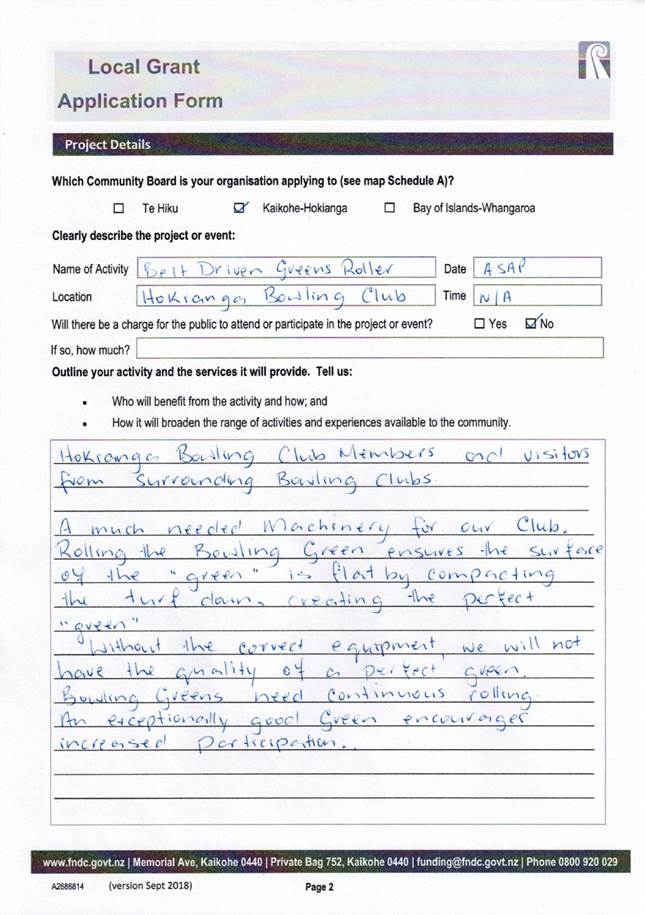 Local Grant
Application Form
Project Details
Which Community Board is your organisation applying to (see map Schedule A)?
Te Hiku Kaikohe-Hokianga Bay of Islands-Whangaroa
Clearly describe the project or event:
Name of Activity Belt Driven Greens Roller Date ASAP
Location Hokianga Bowling Club Time N/A
Will there be a charge for the public to attend or participate in the project or event? Yes No
If so, how much?
Outline your activity and the services it will provide. Tell us:
• Who will benefit from the activity and how; and
• How it will broaden the range of activities and experiences available to the community.
Hokianga Bowling Club Members and visitors
from surrounding Bowling Clubs.
A much needed Machinery for our Club.
Rolling the Bowling Green ensures the surface
of the "green" is flat by compacting
the turf down, creating the perfect
"green"
Without the correct equipment, we will not
have the quality of a perfect green.
Bowling Greens need continuous rolling.
An exceptionally good Green encourages
increased participation..
www.fndc.govt.nz | Memorial Ave, Kaikohe 0440 | Private Bag 752, Kaikohe 0440 | funding@fndc.govt.nz | Phone 0800 920 029
A2686814 (version Sept 2018) Page 2